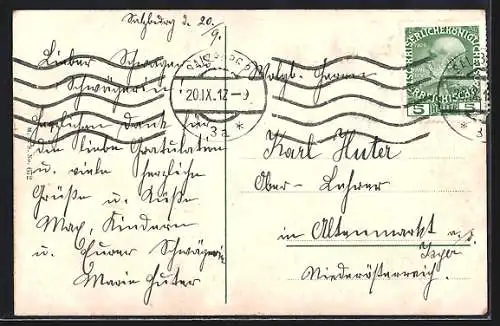 Salzburg d. 20./9.
Lieber Schwager
Schwägerin
herzlichen Dank für
die liebe Gratulation
u. viele herzliche
Grüße u. Küsse
Max, Kindern
u. Eurer Schwägerin
Marie Huter
SALZBURG 2
20.IX.12-9
* 3a *
KAISERLICHE KÖNIGLICHE
ÖSTERREICHISCHE
5 5
Wolgb. Herrn
Karl Huter
Ober-Lehrer
in Altenmarkt a.d.
Isper
Niederösterreich.